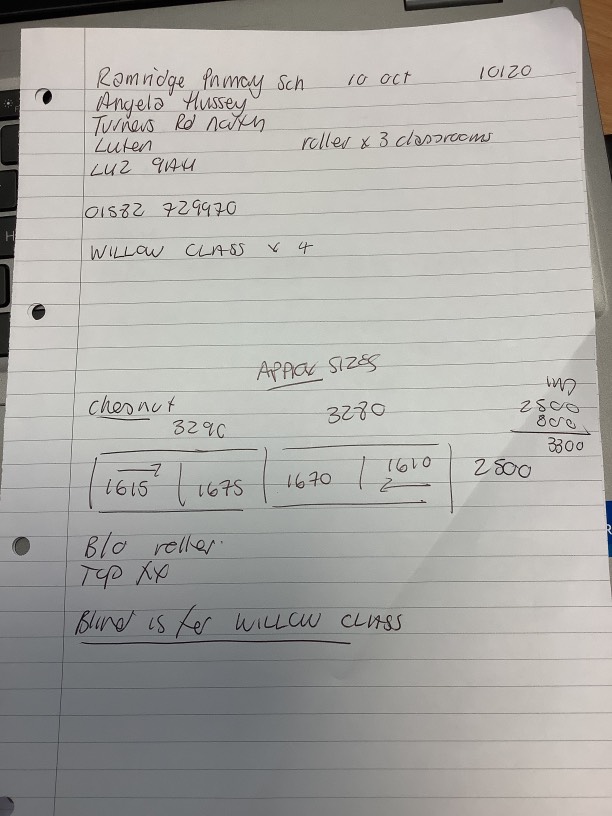 Ramridge Primary Sch 10 oct 10120
Angela Hussey
Turners Rd North
Luton roller x 3 classrooms
LU2 9AH
01582 729970
WILLOW CLASS x 4
APPROX SIZES
Chesnut 3280
3290
2500
800
3300
1615 1675 1670 1610 2500
2
B/O roller.
Top
Blind is for WILLOW CLASS